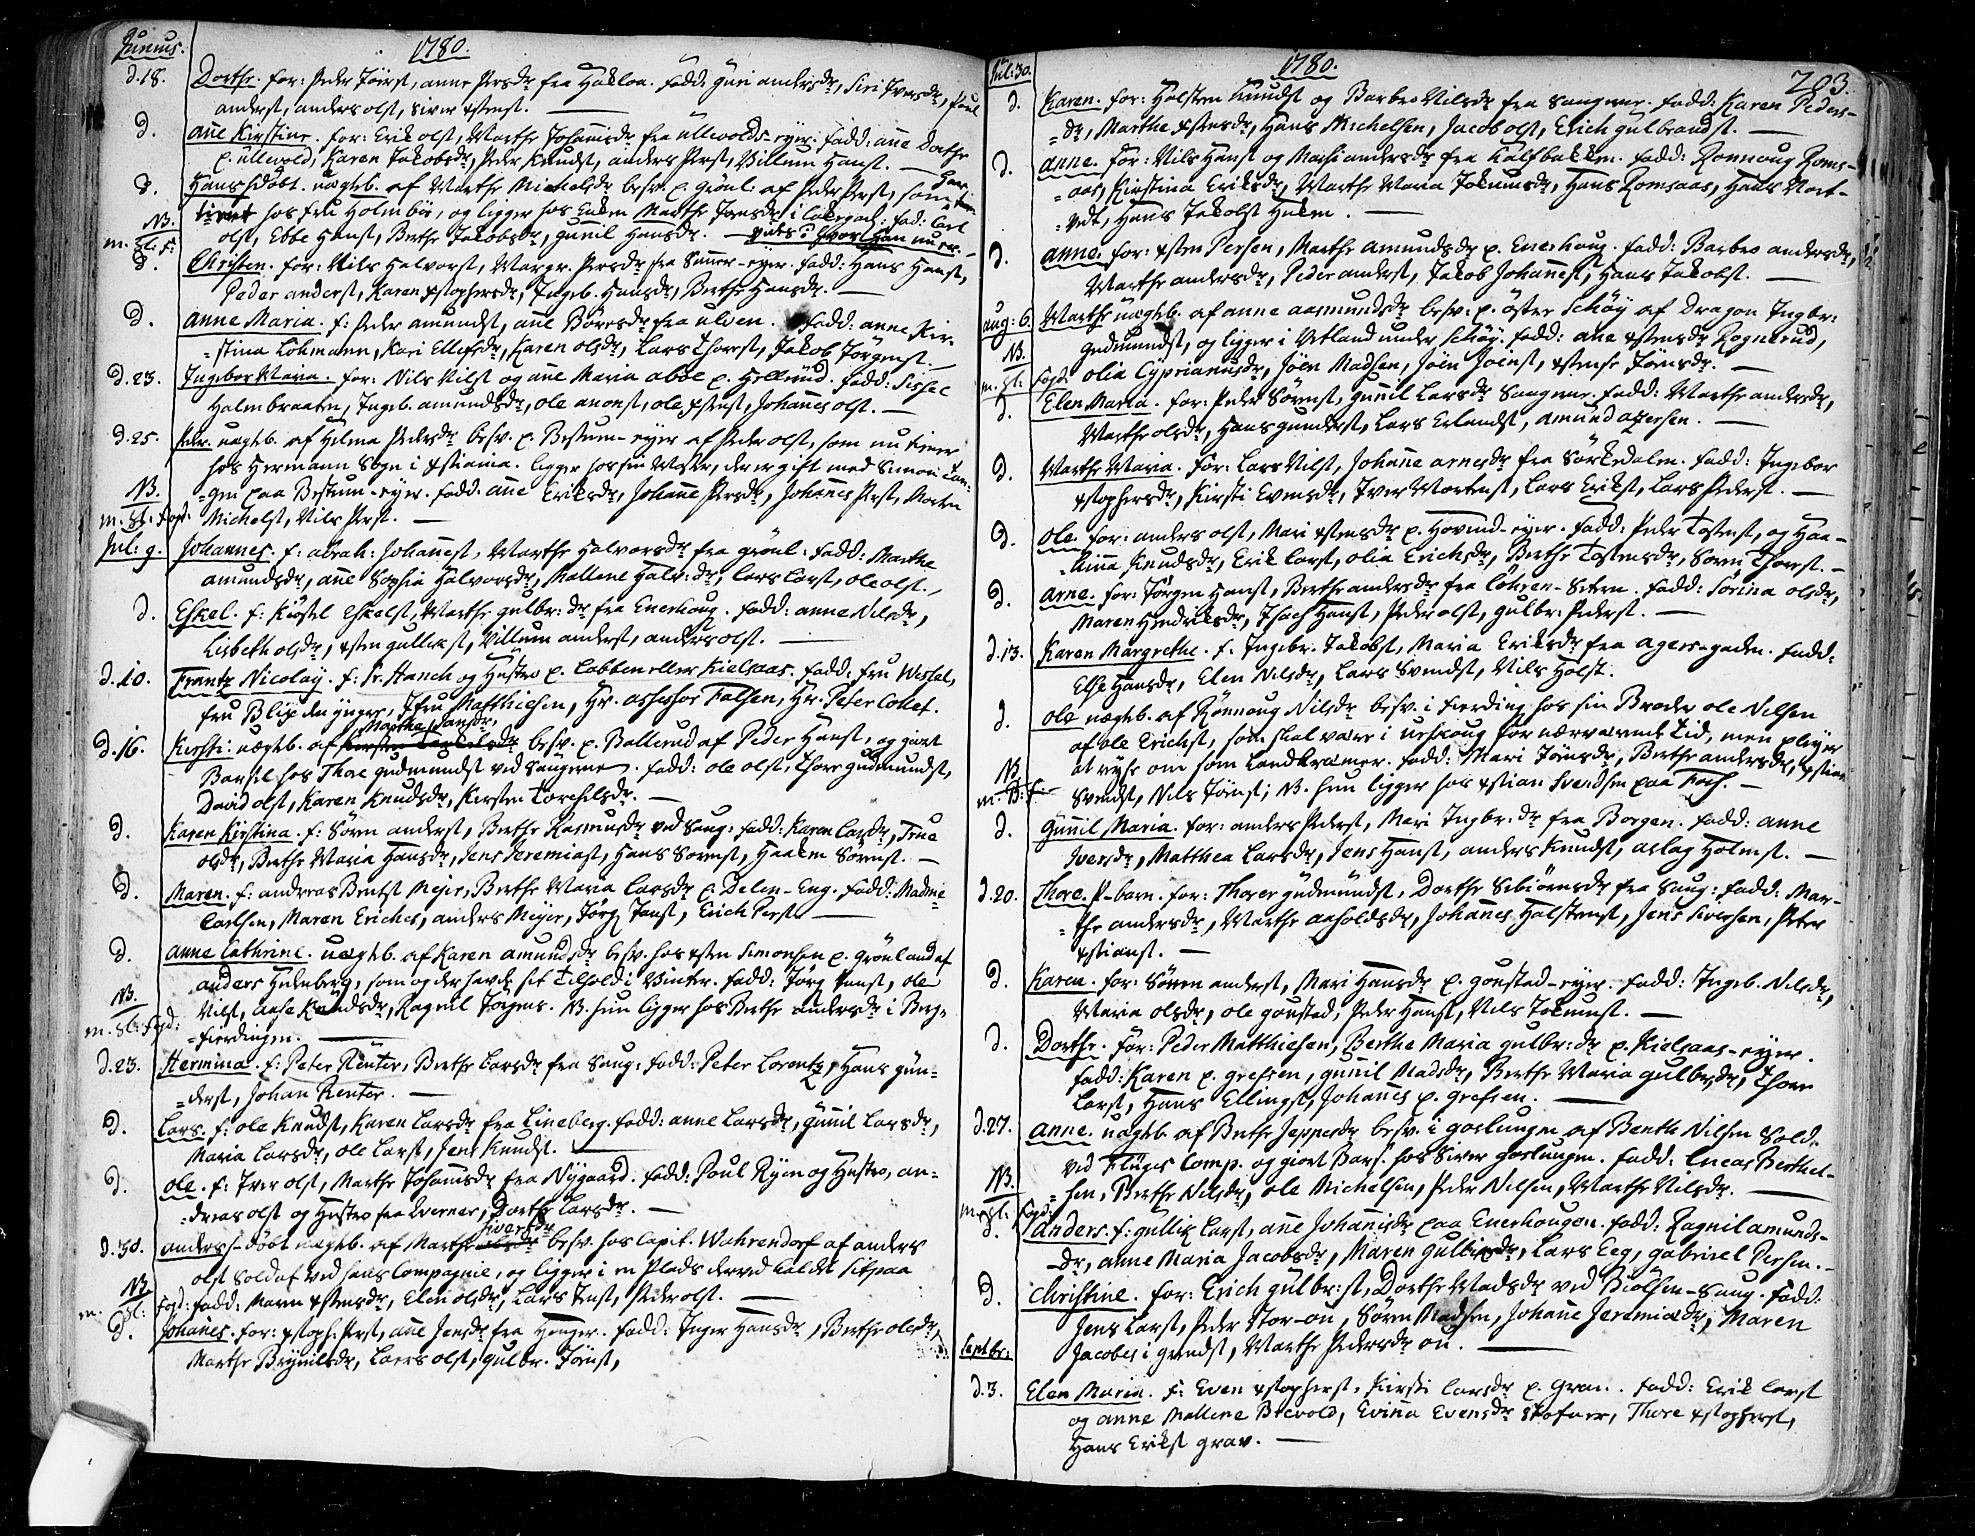 Junius.
1780.
d. 18. Dorthe. for: Peder Jörst, anne Persdr fra Hakloa. fadd: Guri andersdr, Siri Iversdr, Poul
anderst, anders olst, Siver xstenst.
d. añe Kirstine. for: Erik olst, Marthe Johañisdr fra Ullevolds-eyer. fadd: añe Dorthe
p. ullevold, Karen Jakobsdr, Peder Knudst, anders Perst, Villum Hanst.
d. Hans hdöbt. uægteb. af Marthe Michelsdr besv. p. Grönl: af Peder Perst, som har
tient hos fru Holmboe, og ligger hos Enken Marthe Jensdr i Lakegad: fad: Carl
NB.
m. Sl: F:
olst, Ebbe Hanst, Berthe Jakobsdr, Gunil Hansdr.
d. Christen. for: Nils Halvorst, Margr. Persdr fra Tauer-eyer. fadd: Hans Hanst,
Peder anderst, Karen xstophersdr, Ingeb. Hansdr, Berthe Hansdr.
d. anne Maria. f: Peder amundst, añe Börresdr fra ulven. fadd: anne Kir-
=stina Lohmann, Kari Ellefsdr, Karen olsdr, Lars Thorst, Jakob Jörgenst.
d. 23. Ingebor Maria. for: Nils Nilst og añe Maria abbe p. Hellerud. fadd: Sissel
Holmbraaten, Ingeb. amundsdr, ole anonst, ole xstenst, Johañes olst.
d. 25. Peder. uægteb. af Helena Pedersdr besv. p. Bestum-eyer af Peder olst, som nu tiener
hos Hermann Sogn i xstiania. ligger hos sin Moster, der er gift med Simon Lan-
NB.
=gen paa Bestum-eyer. fadd: añe Eriksdr, Johañe Persdr, Johañes Perst, Morten
m. Sl: Fogd:
Michelst, Nils Perst.
Jul: 9. Johannes. f: abrah: Johañest, Marthe Halvorsdr fra Grönl: fadd: Marthe
amundsdr, añe Sophia Halvorsdr, Mallene Halv:dr, Lars Larst, ole olst.
d. Eskel. f: Kiöstel Eskelst, Marthe gulbr:dr fra Enerhoug. fadd: anne Nilsdr,
Lisbeth olsdr, xsten gullikst, Villum anderst, anders olst.
d. 10. Frantz Nicolay. f: Sr. Hanch og Hustro p. Labben eller Kielsaas. fadd: fru Wessel,
fru Blix den yngre, Jfru Matthiesen, Hr. assessor Falsen, Hr. Peter Collet.
Marthe Jansdr,
d. 16. Kirsti: uægteb. af besv. p. Ballerud af Peder Hanst, og giort
Barsel hos Thore gudmundst ved Saugene. fadd: ole olst, Thore gudmundst,
David olst, Karen Knudsdr, Kirsten Torchilsdr.
d. Karen Kirstina. f: Sörn anderst, Berthe Rasmusdr ved Saug: fadd: Karen Larsdr, True
olsdr, Berthe Maria Hansdr, Jens Jeremiast, Hans Sörnst, Haakn Sörnst.
d. Maren. f: andreas Bentst Mejer, Berthe Maria Larsdr p. Delen-Eng. fadd: Madme
Carlsen, Maren Eriches, anders Mejer, Jörg Janst, Erich Perst.
d. anne Cathrine. uægteb. af Karen amundsdr besv. hos xsten Simonsen p. Grönland af
anders Helneberg, som og der havde sit Tilhold i Vinter. fadd: Jörg Janst, ole
NB.
Nilst, aase Knudsdr, Ragnil Jörgens. NB. hun ligger hos Berthe andersdr i Berg-
m. Sl: Fogd:
=fierdingen.
d. 23. Hermina. f: Peter Renter, Berthe Larsdr fra Saug: fadd: Peter Lorentz, Hans gun-
=derst, Johan Renter.
d. Lars. f: ole Knudst, Karen Larsdr fra Lineberg. fadd: anne Larsdr, Gunil Larsdr,
Maria Larsdr, ole Larst, Jens Knudst.
d. ole. f: Iver olst, Marthe Johañisdr fra Nÿgaard. fadd: Poul Ryen og Hustro, an-
=dreas olst og Hustro fra Qverner, Dorthe Larsdr.
Siversdr
d. 30. anders h-döbt uægteb. af Marthe besv. hos Capit. Wahrendorf af anders
olst Soldat ved hans Compagnie, og ligger i en Plads derved kaldet Sitpaa
NB.
m. Sl: Fogd: fadd: Maren xstensdr, Elen olsdr, Lars Jenst, Peder olst.
d. Johañes. for: xstoph. Perst, añe Jensdr fra Henger. fadd: Inger Hansdr, Berthe olsdr,
Marthe Brynilsdr, Lars olst, gulbr. Jönst,
Jul: 30.
1780.
203.
d. Karen. for: Halsten Knudst og Barbro Nilsdr fra Saugene. fadd: Karen Peders-
=dr, Marthe xstensdr, Hans Michelsen, Jacob olst, Erich gulbrandst.
d. anne. for: Nils Hanst og Mari andersdr fra Kalfbakken. fadd: Ronnoug Roms-
=aas, Kirstina Eriksdr, Marthe Maria Jokumsdr, Hans Romsaas, Hans Nort-
=vedt, Hans Jakobst Hukn.
d. anne. for: xsten Persen, Marthe amundsdr p. Enerhoug. fadd: Barbro andersdr,
Marthe andersdr, Peder anderst, Jakob Johañest, Hans Jakobst.
aug: 6. Marthe uægteb. af anne aasmundsdr besv: p. öster Schöy af Dragon Ingbr:
gudmundst, og ligger i Utland under Schöy. fadd: ane xstensdr Rognerud,
NB.
m. Sl: Fogd:
olia Cyprianusdr, Joen Madsen, Joen Joenst, xstense Jönsdr.
d. Elen Maria. for: Peder Sörnst, Gunil Larsdr Saugene. fadd: Marthe andersdr,
Marthe olsdr, Hans gunderst, Lars Erlandst, amund assersen.
d. Marthe Maria. for: Lars Nilst, Johañe arnesdr fra Sörkedalen. fadd: Ingebor
xstophersdr, Kirsti Evensdr, Iver Mortenst, Lars Erikst, Lars Pederst.
d. ole. for: anders olst, Mari xstensdr p. Hovind-eyer. fadd: Peder Tostenst, og Haa-
=kina Knudsdr, Erik Larst, olia Erichsdr, Berthe Tostensdr, Sörn Thorst.
d. arne. for: Jörgen Hanst, Berthe andersdr fra Löhren-Setern. fadd: Sörina olsdr,
Maren Hendriksdr, Isach Hanst, Peder olst, gulbr: Pederst.
d. 13. Karen Margrethe. f: Ingebr. Jakobst, Maria Eriksdr fra Agers-gaden. fadd:
Else Hansdr, Elen Nilsdr, Lars Svendst, Nils Holst.
d. ole uægteb. af Rönnoug Nilsdr besv. i fierding hos sin Broder ole Nilsen
af ole Erichst, som skal være i urskoug for nærværende Tid, men pleyer
NB.
at reyse om som Landkræmer. fadd: Mari Jönsdr, Berthe andersdr, xstian
m. B: F:
Svendst, Nils Jönst; NB. hun ligger hos xstian Svendsen paa Fos.
d. Gunil Maria. for: anders Pederst, Mari Ingbr:dr fra Borgen. fadd: anne
Iversdr, Matthea Larsdr, Jens Hanst, anders Knudst, aslag Holmst.
d. 20. Thore. P-barn. for: Thorer gudmundst, Dorthe Sebiörnsdr fra Saug: fadd: Mar-
=the andersdr, Marthe aasoldsdr, Johañes Halstenst, Jens Siversen, Peter
xstianst.
d. Karen. for: Sören anderst, Mari Hansdr p. gousted-eyer. fadd: Ingeb. Nilsdr,
Maria olsdr, ole gousted, Peder Hanst, Nils Jokumst.
d. Dorthe. for: Peder Matthiesen, Berthe Maria gulbr:dr p. Kielsaas-eyer.
fadd: Karen p. grefsen, gunil Madsdr, Berthe Maria gulbrdr, Thore
Larst, Hans Ellingst, Johañes p. grefsen.
d. 27. anne. uægteb. af Berthe Jeppesdr besv. i goslungen af Benth Nilsen Sold.
ved Flüges Comp. og giort Bars. hos Siver goslungen. fadd: Lucas Berthel-
NB.
=sen, Berthe Nilsdr, ole Michelsen, Peder Nilsen, Marthe Nilsdr.
m. Sl: Fogd:
d. Anders. f: gullik Larst, añe Johañisdr paa Enerhougen. fadd: Ragnil amunds-
=dr, anne Maria Jacobsdr, Maren Gulliksdr, Lars Eeg, gabriel Persen.
d. Christine. for: Erich gulbr:st, Dorthe Madsdr ved Biölsen-Saug. fadd:
Jens Larst, Peder Stor-ou, Sören Madsen, Johañe Jeremiædr, Maren
Jacobes i grendst, Marthe Pedersdr ou.
Septbr:
d. 3. Elen Maria. f: Even xstopherst, Kirsti Larsdr p. Grav. fadd: Erik Larst
og anne Mallene Brevold, Eviña Evensdr Skofner, Thore xstopherst,
Hans Erikst grav.